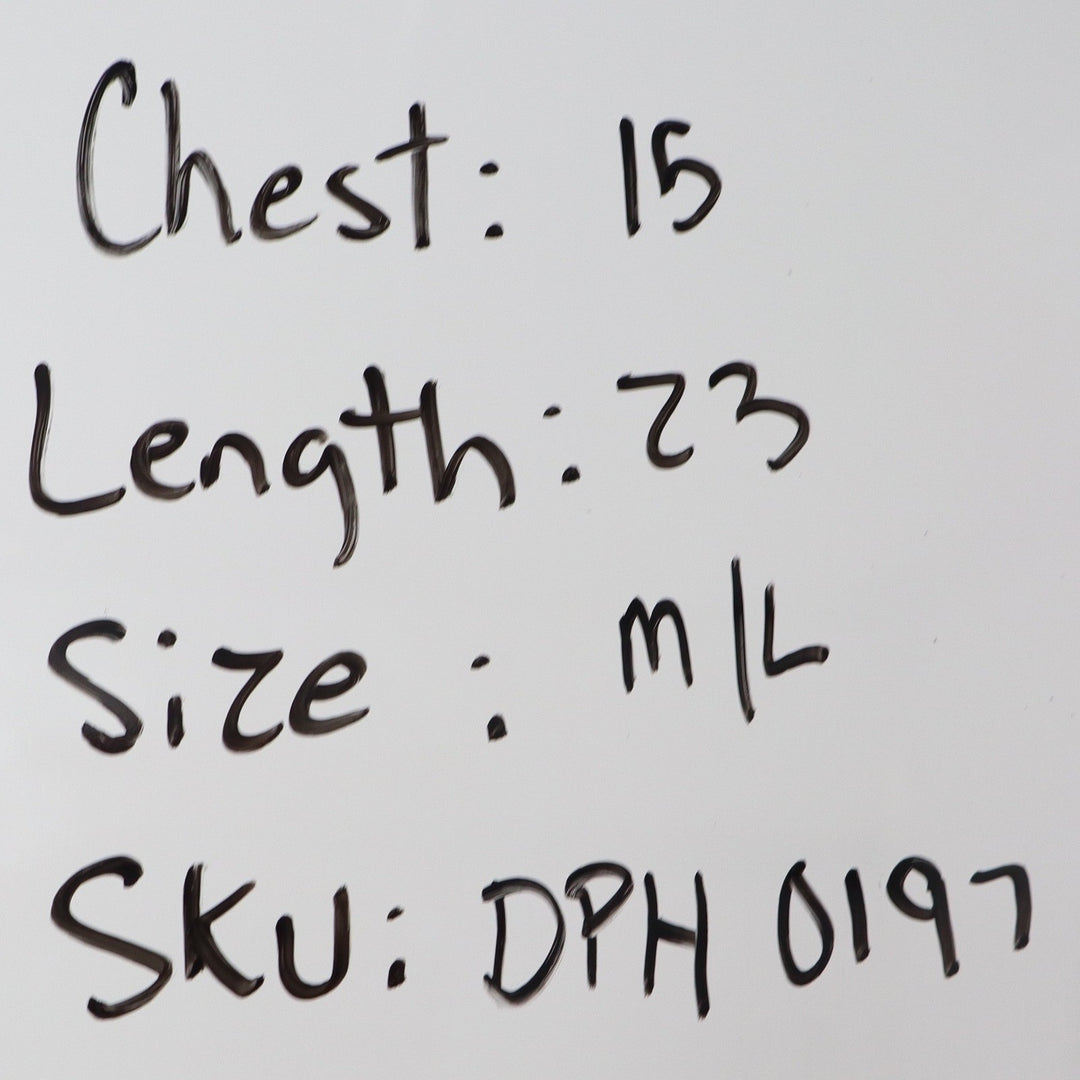 Chest: 15
Length: 23
Size: M/L
SKU: DPH 0197